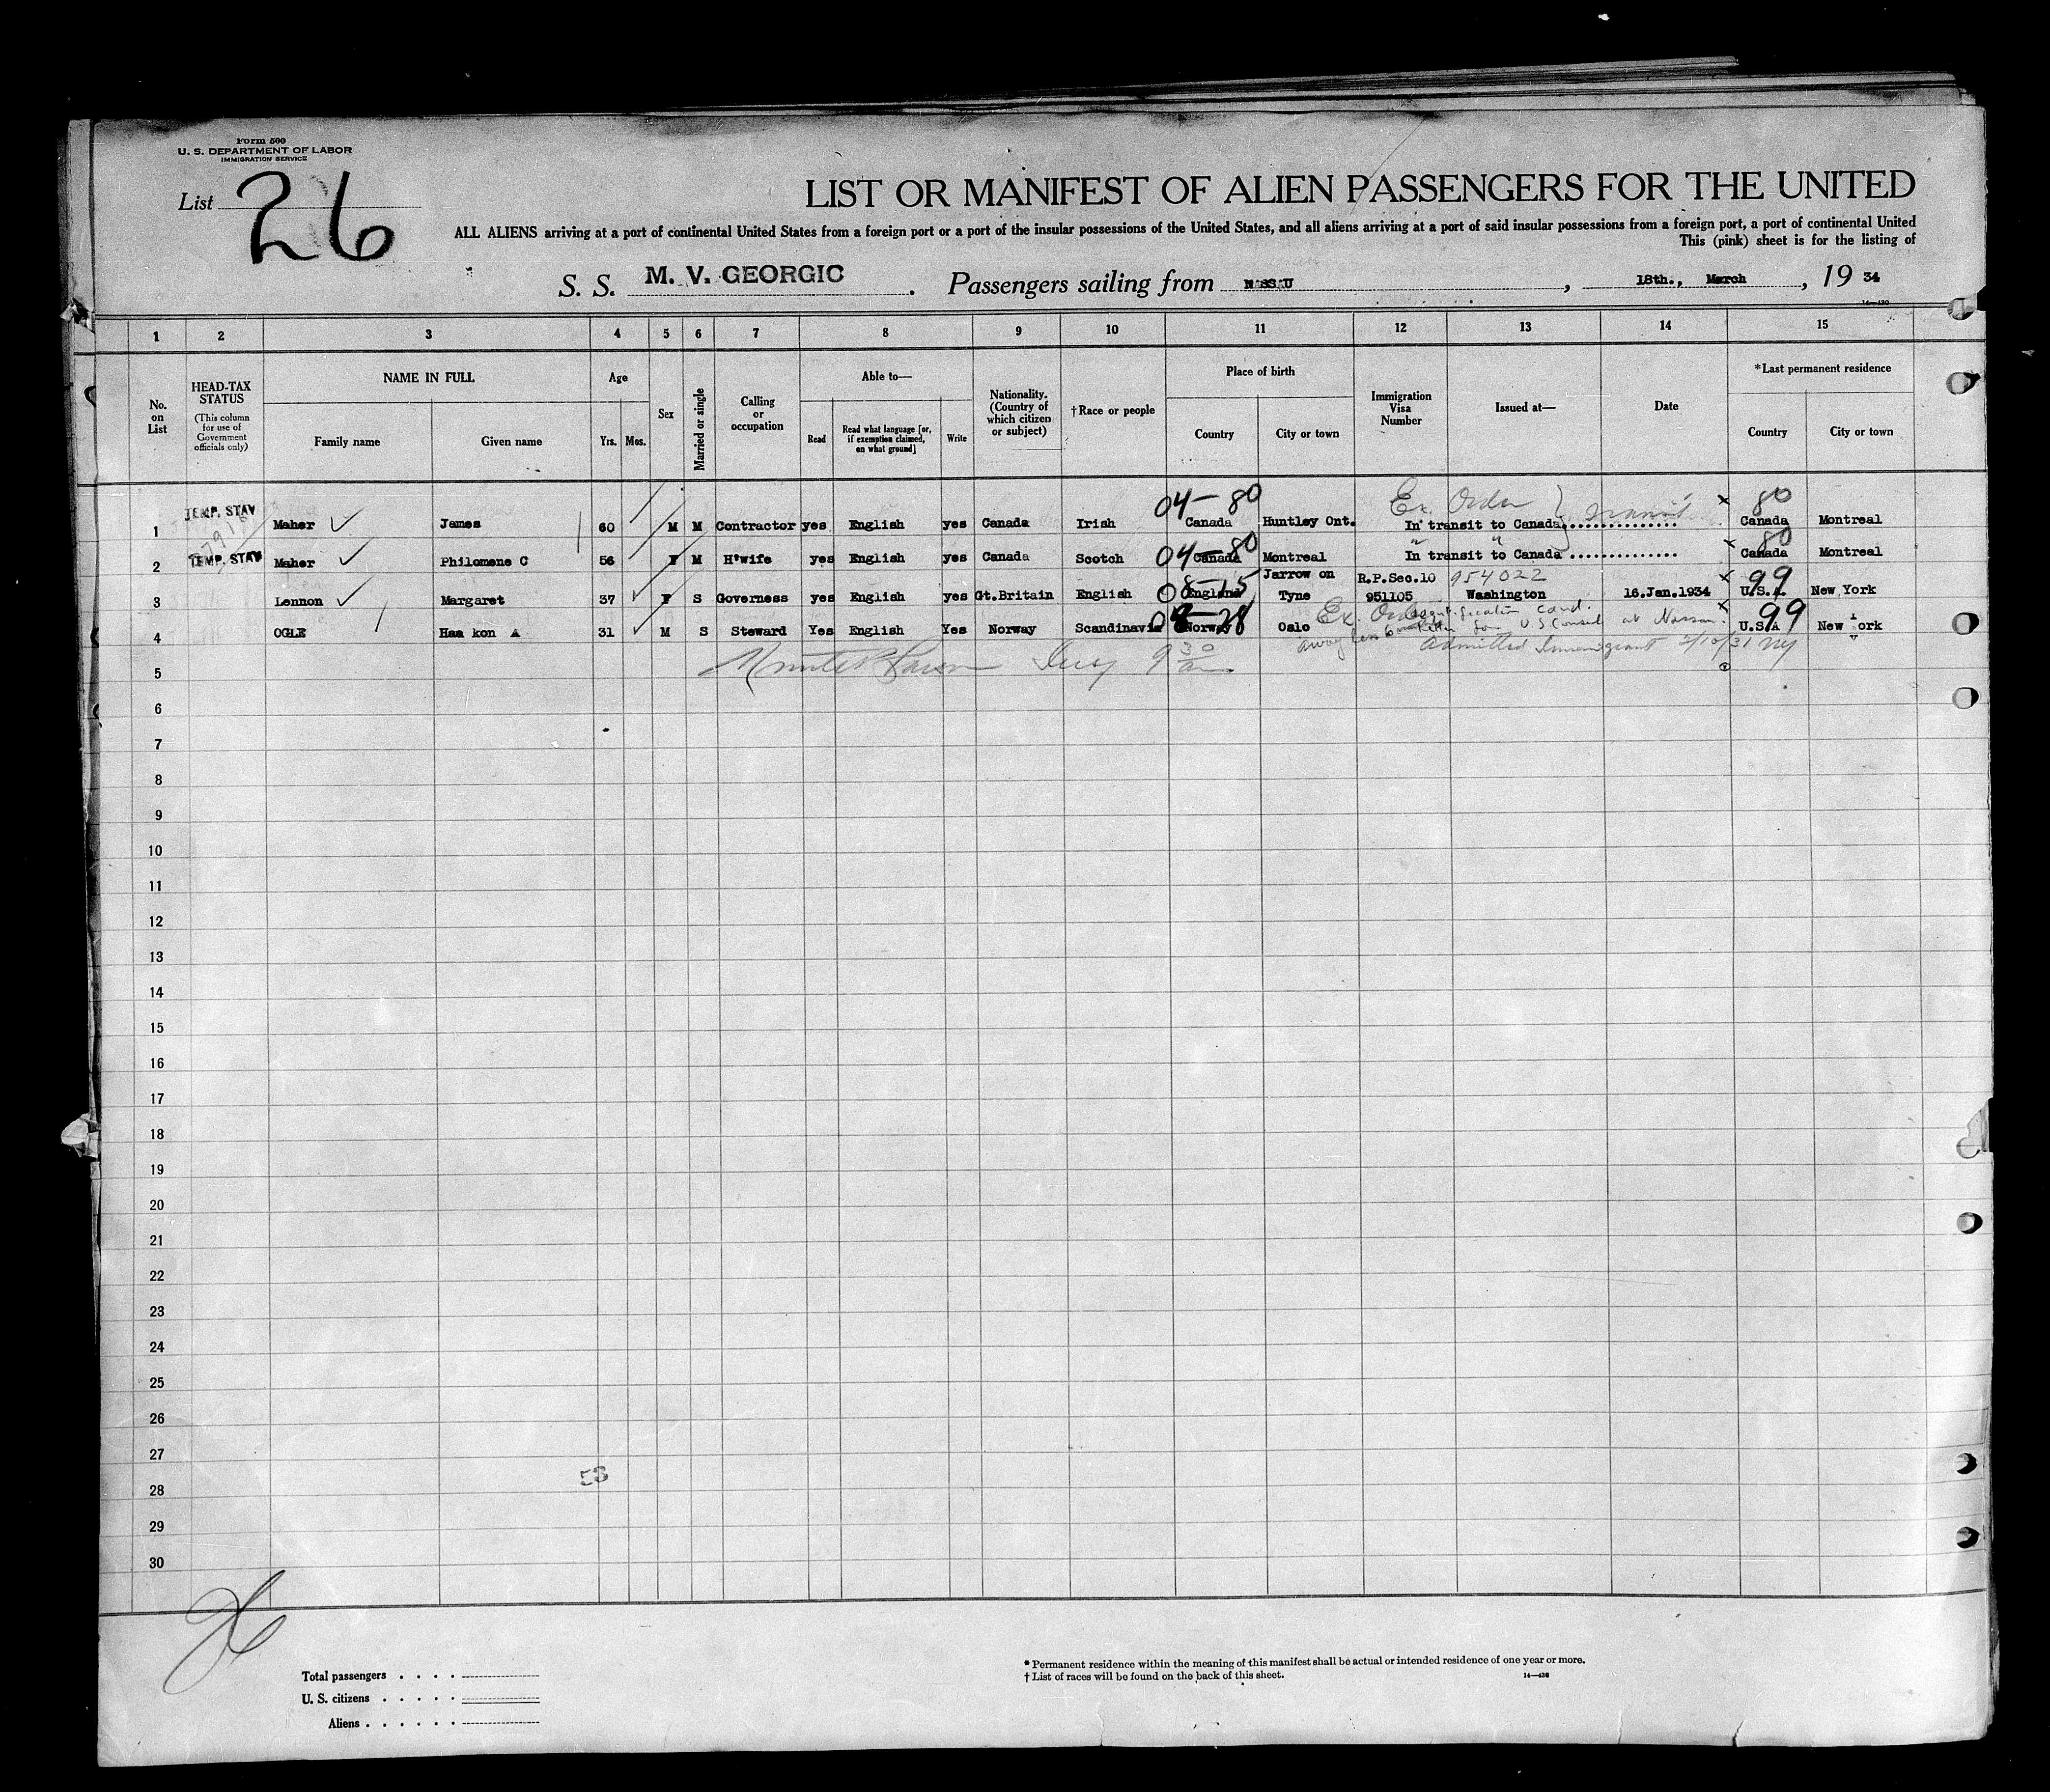 Form 500
U. S. DEPARTMENT OF LABOR
IMMIGRATION SERVICE
List 26
LIST OR MANIFEST OF ALIEN PASSENGERS FOR THE UNITED
ALL ALIENS arriving at a port of continental United States from a foreign port or a port of the insular possessions of the United States, and all aliens arriving at a port of said insular possessions from a foreign port, a port of continental United
This (pink) sheet is for the listing of
S. S. M. V. GEORGIC . Passengers sailing from NASSAU , 18th., March , 19 34
14—430
1 2 3 4 5 6 7 8 9 10 11 12 13 14 15
No. on List
HEAD-TAX STATUS (This column for use of Government officials only)
NAME IN FULL
Family name Given name
Age
Yrs. Mos.
Sex
Married or single
Calling or occupation
Able to—
Read Read what language [or, if exemption claimed, on what ground] Write
Nationality. (Country of which citizen or subject)
†Race or people
Place of birth
Country City or town
Immigration Visa Number
Issued at—
Date
*Last permanent residence
Country City or town
04-80 Ex. Order } transit x 80
1 TEMP. STAY Maher James 60 M M Contractor yes English yes Canada Irish Canada Huntley Ont. In transit to Canada.............. Canada Montreal
04-80 " " x 80
2 TEMP. STAY Maher Philomene C 56 F M H'wife yes English yes Canada Scotch Canada Montreal In transit to Canada.............. Canada Montreal
08-15 Jarrow on R.P.Sec.10 954022 x 99
3 Lennon Margaret 37 F S Governess yes English yes Gt.Britain English England Tyne 951105 Washington 16.Jan.1934 U.S.A. New York
Ex. Order Identification Card. x 99
4 OGLE Haa kon A 31 M S Steward Yes English Yes Norway Scandinavia Norway Oslo U S Consul at Nassau. U.S.A New York
away 6 Admitted Immigrant 2/10/31 NY
5 9 30
6
7
8
9
10
11
12
13
14
15
16
17
18
19
20
21
22
23
24
25
26
27
28
29
30
53
26
Total passengers . . . .
U. S. citizens . . . . .
Aliens . . . . . .
* Permanent residence within the meaning of this manifest shall be actual or intended residence of one year or more.
† List of races will be found on the back of this sheet.
14—430